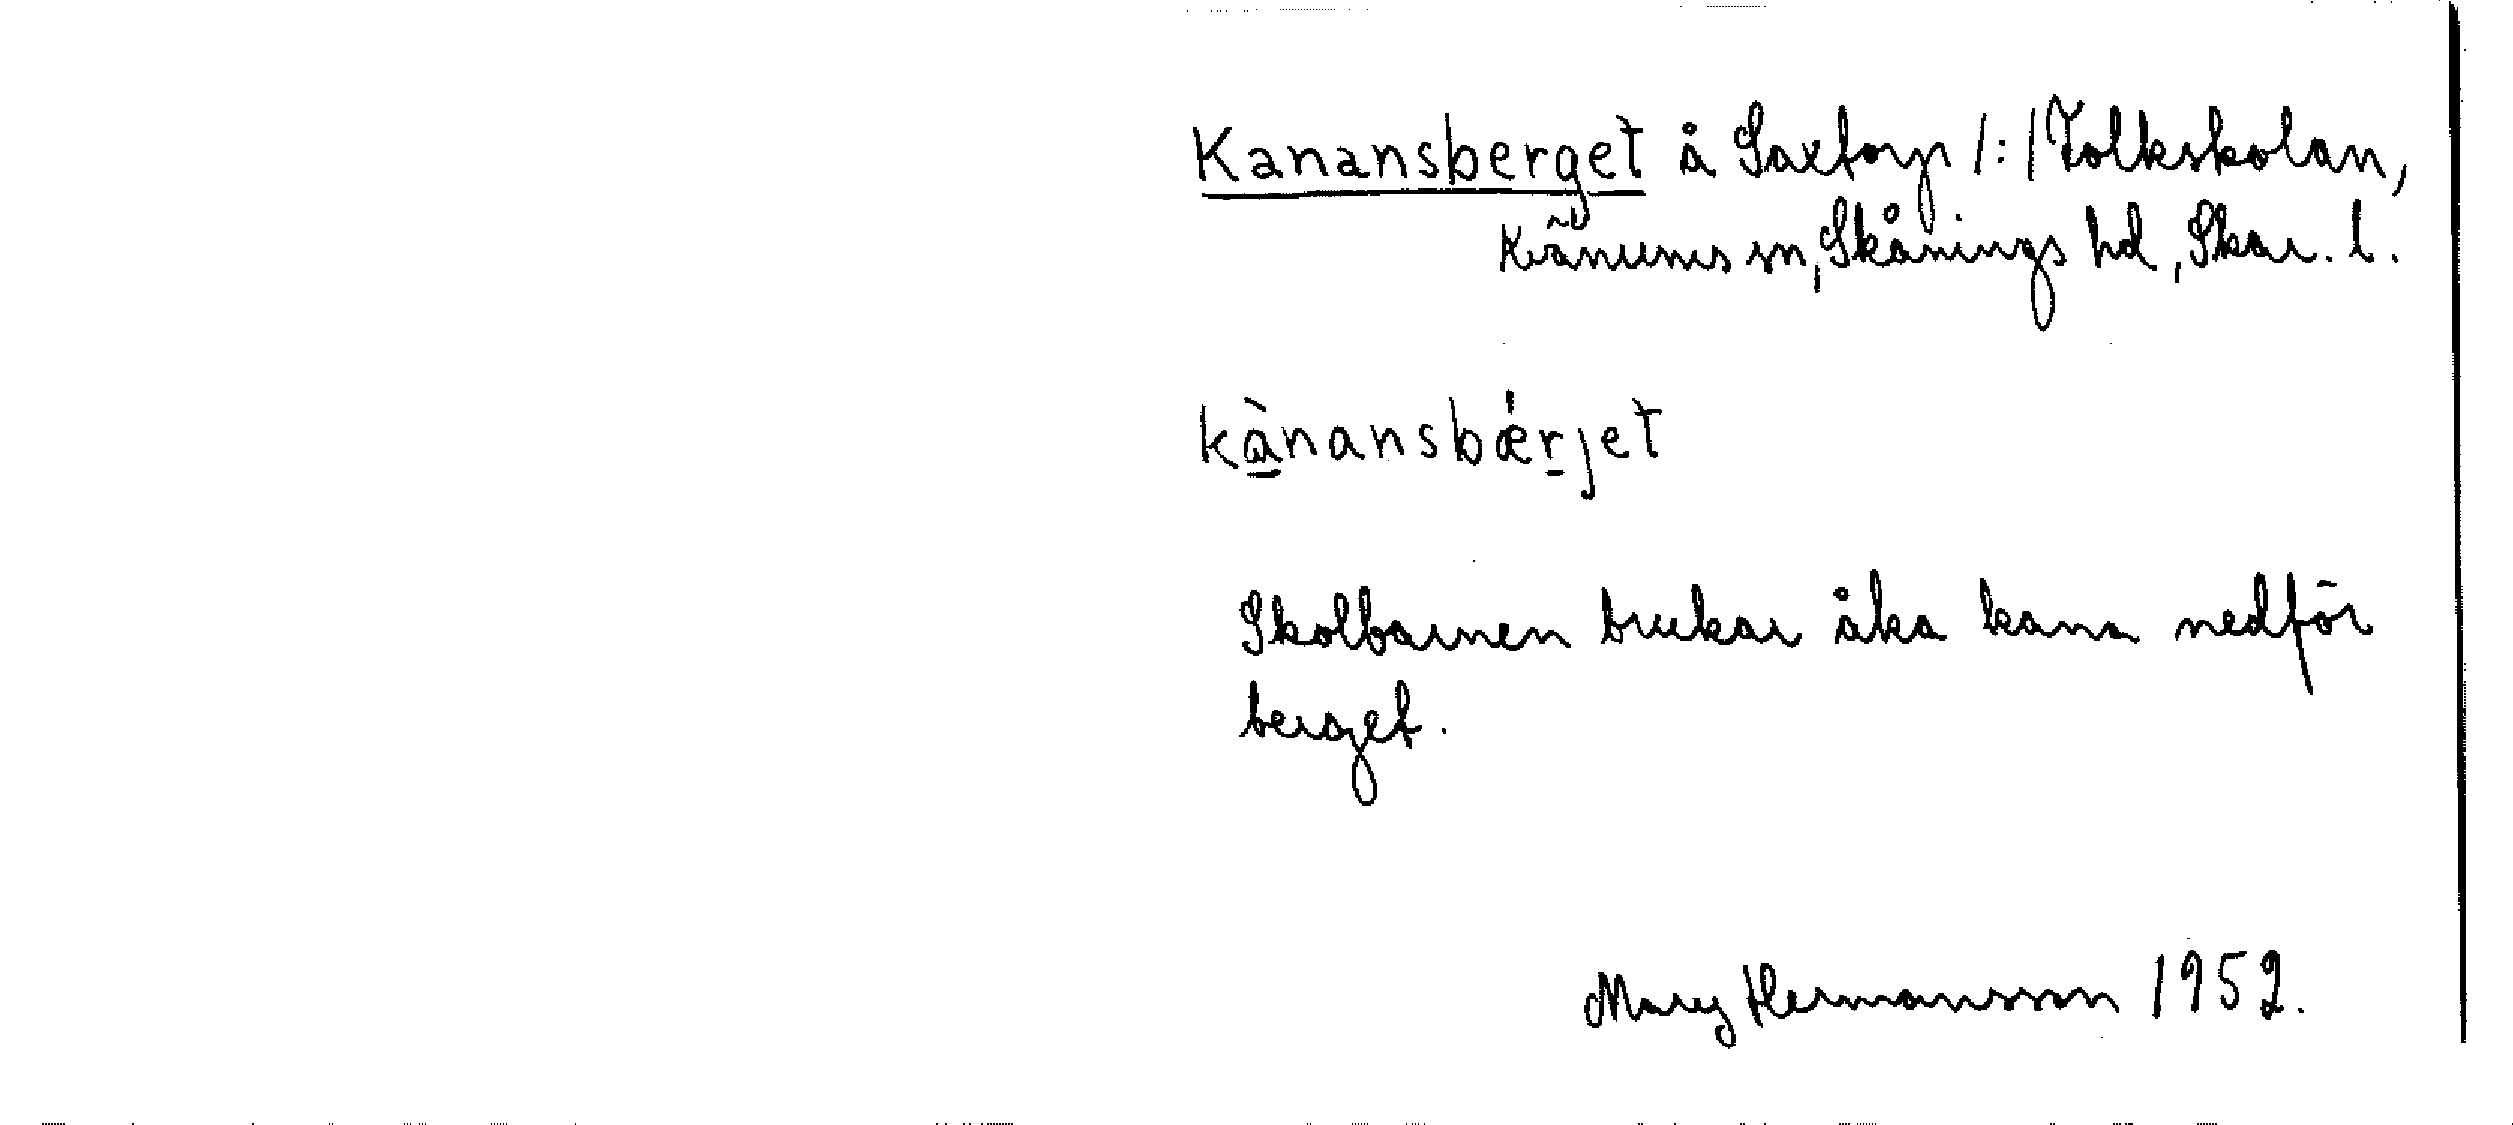 Kanansberget å Saxtorp 1:1 Folkskolan,
Kvänums sn, Skånings hd, Skar. l.
kànansbǽrjet
Skolbarnen brukar åka kana nedför
berget.
Mary Hermansson 1952.